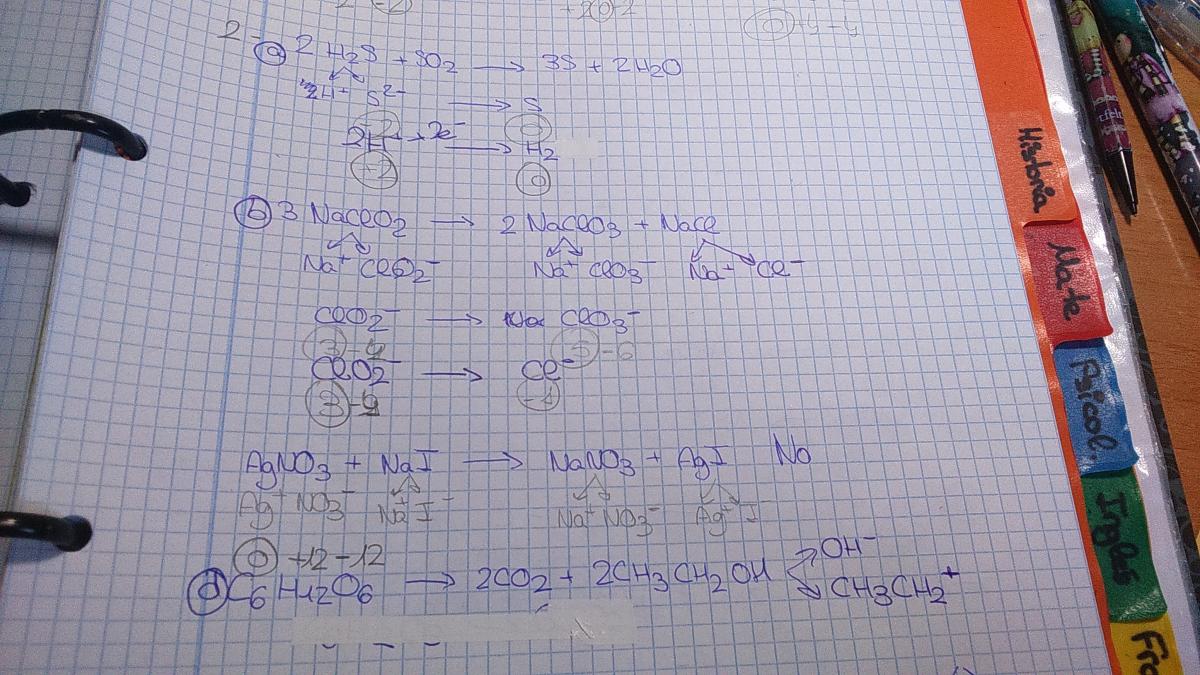 2-
a) 2 H2S + SO2 → 3S + 2H2O
2H+ S2- → S
-2 0
2H+ + 2e- → H2
+2 0
b) 3 NaClO2 → 2 NaClO3 + NaCl
Na+ ClO2- Na+ ClO3- Na+ Cl-
ClO2- → ClO3-
3-4 5-6
ClO2- → Cl-
3-4 -1
AgNO3 + NaI → NaNO3 + AgI No
Ag+ NO3- Na+ I- Na+ NO3- Ag+ I-
0 +12-12
d) C6H12O6 → 2CO2 + 2CH3CH2OH OH-
CH3CH2+
Historia
Mate
Psicol.
Ingles
Fra